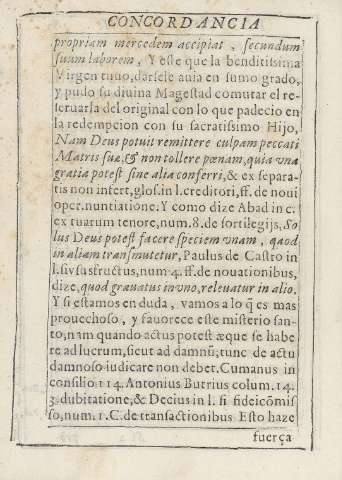 CONCORDANCIA
propriam mercedem accipiat, secundum
suum laborem, Y este que la benditissima
Virgen tuuo, darsele auia en sumo grado,
y pudo su diuina Magestad comutar el re-
seruarla del original con lo que padecio en
la redempcion con su sacratissimo Hijo,
Nam Deus potuit remittere culpam peccati
Matris suæ, & non tollere pœnam, quia vna
gratia potest sine alia conferri, & ex separa-
tis non infert, glos. in l. creditori, ff. de noui
oper. nuntiatione. Y como dize Abad in c.
ex tuarum tenore, num. 8. de sortilegijs, So
lus Deus potest facere speciem vnam, quod
in aliam transmutetur, Paulus de Castro in
l. si vsusfructus, num 4. ff. de nouationibus,
dize, quod grauatus in vno, releuatur in alio.
Y si estamos en duda, vamos a lo q̃ es mas
prouechoso, y fauorece este misterio san-
to, nam quando actus potest æque se habe
re ad lucrum, sicut ad damnũ; tunc de actu
damnoso iudicare non debet. Cumanus in
consilio 114. Antonius Butrius colum. 14.
3. dubitatione, & Decius in l. si fideicõmis
so, num. 1. C. de transactionibus Esto haze
fuerça